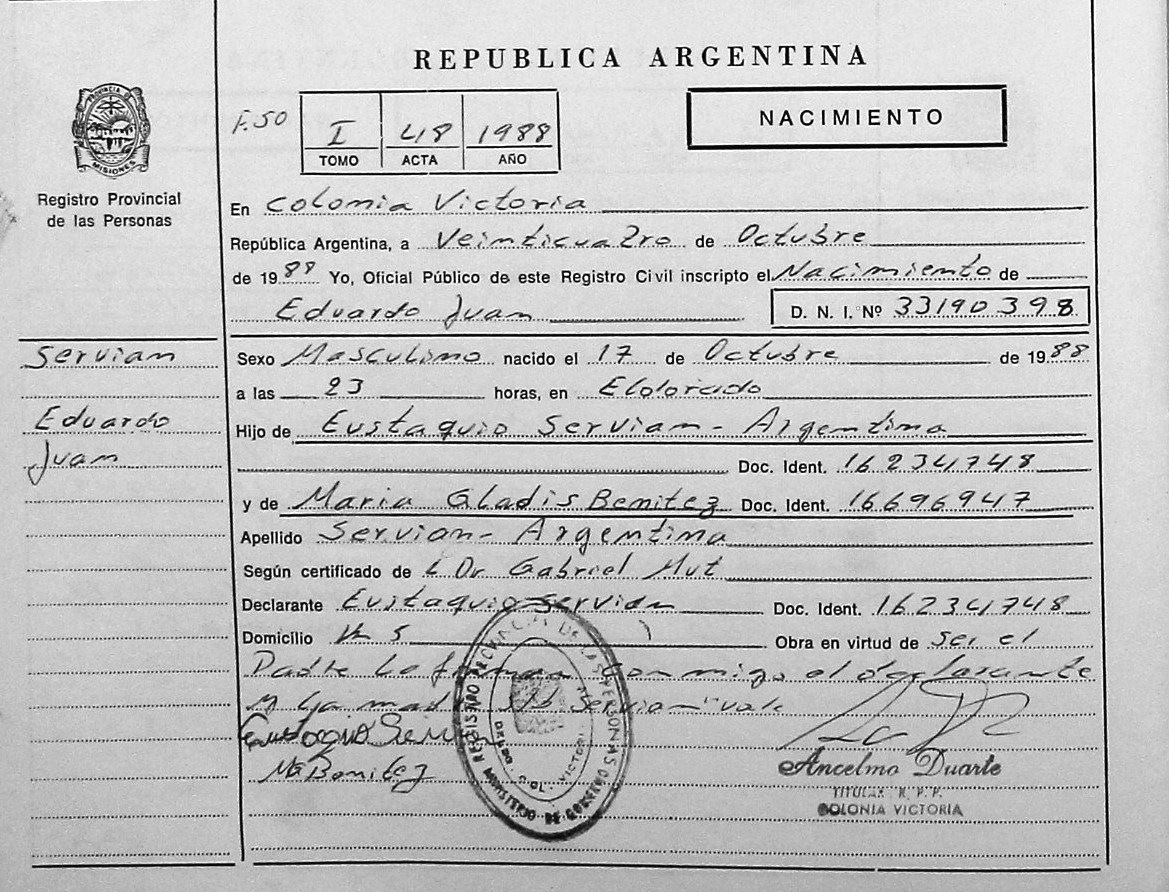 REPUBLICA ARGENTINA
PROVINCIA DE
MISIONES
Registro Provincial
de las Personas
F.50
I 48 1988
TOMO ACTA AÑO
NACIMIENTO
En Colonia Victoria
República Argentina, a Veinticuatro de Octubre
de 1988 Yo, Oficial Público de este Registro Civil inscripto el Nacimiento de
Eduardo Juan D. N. I. Nº 33190398
Servian
Eduardo
Juan
Sexo Masculino nacido el 17 de Octubre de 1988
a las 23 horas, en Eldorado
Hijo de Eustaquio Servian - Argentina
Doc. Ident. 16234748
y de Maria Gladis Benitez Doc. Ident. 16696947
Apellido Servian - Argentina
Según certificado de L Dr Gabriel Mut
Declarante Eustaquio Servian Doc. Ident. 16234748
Domicilio Km 5 Obra en virtud de ser el
Padre Lo firman conmigo el declarante
y la madre Servian" vale
Mª Benitez
REGISTRO PROVINCIAL DE LAS PERSONAS
MINISTERIO DE GOBIERNO
COL. VICTORIA
Ancelmo Duarte
TITULAR R. P. P.
COLONIA VICTORIA